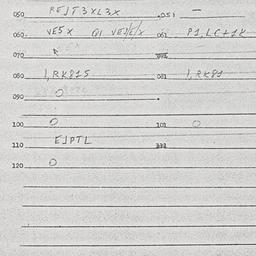 050 REJT3XL3X .051 —
060. VE5X 061 P1,LC+1K
070
080 1,RK815 081 1,RK81
090 O
100 O 101 O
110 EJPTL 111
120 O